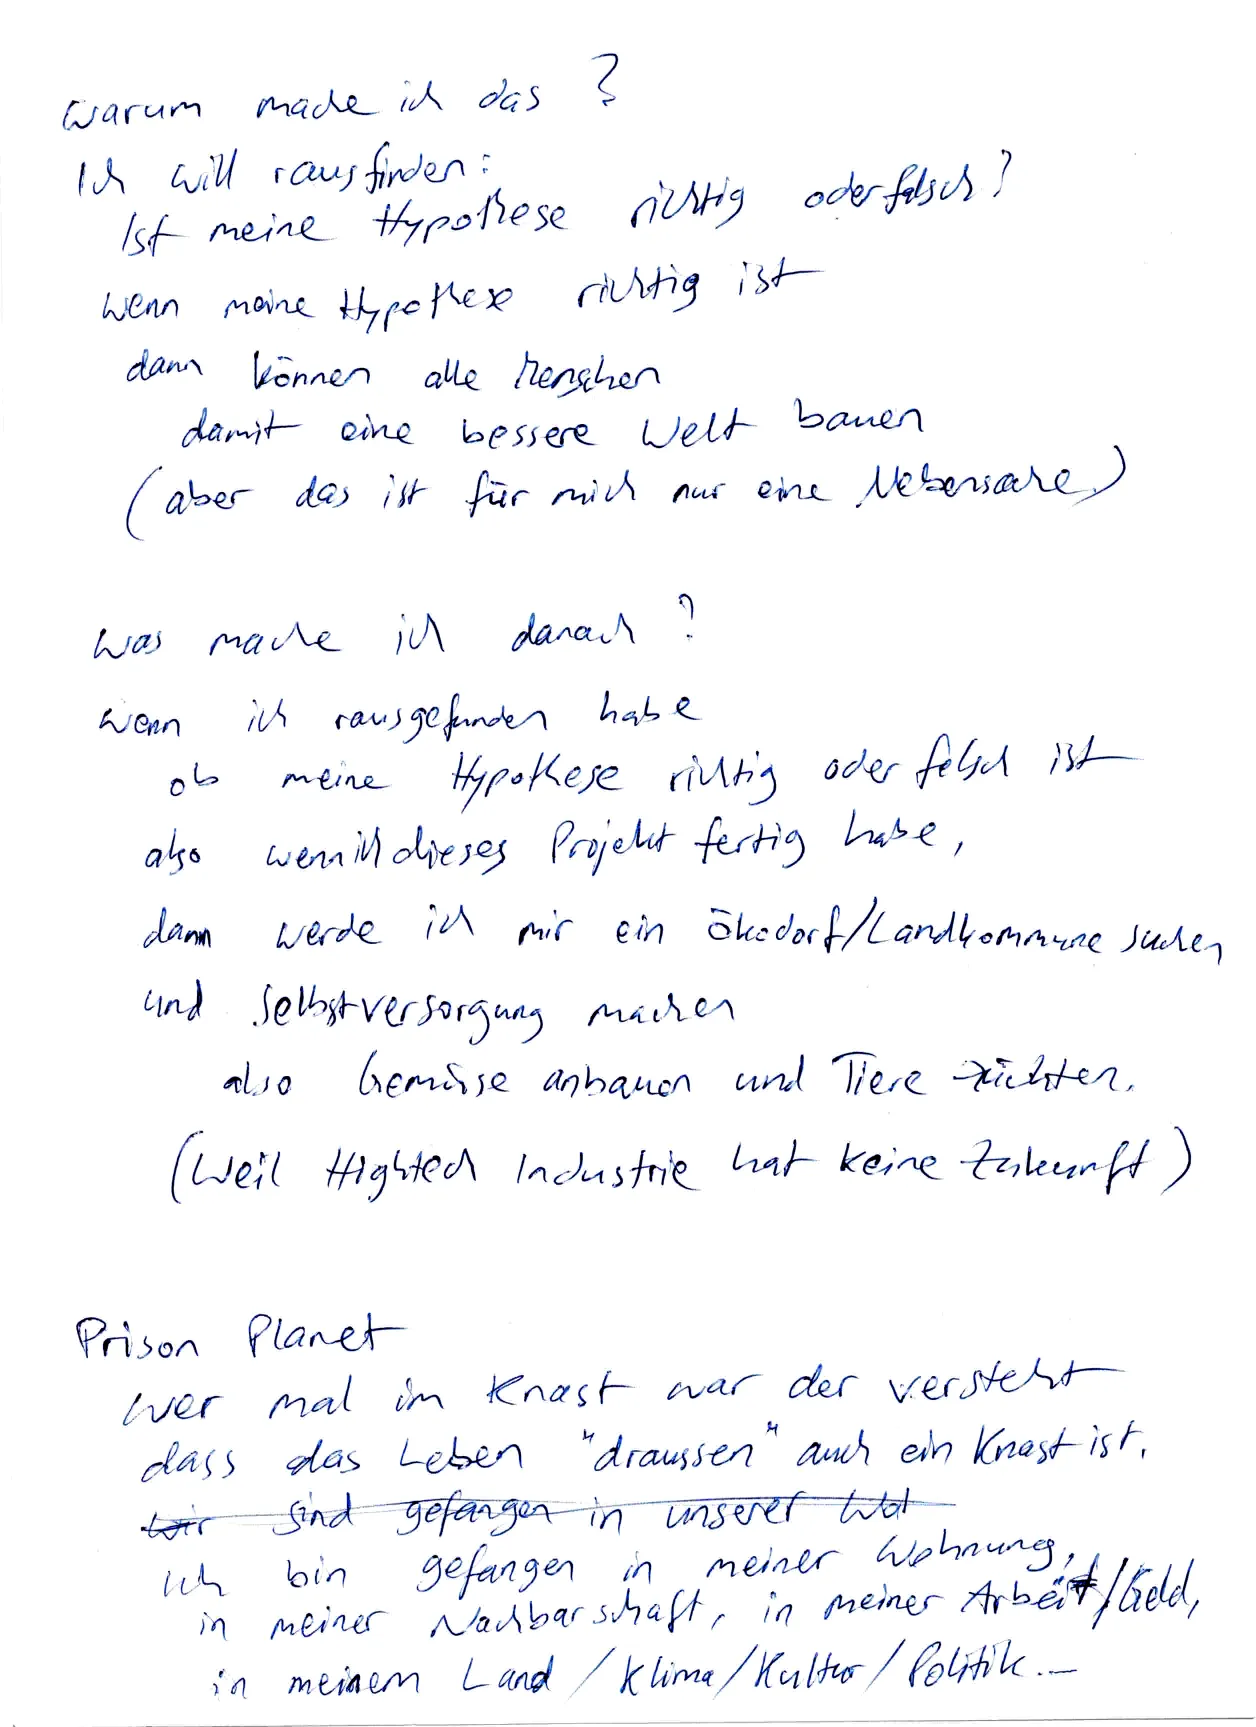 Warum mache ich das?
Ich will rausfinden:
Ist meine Hypothese richtig oder falsch?
wenn meine Hypothese richtig ist
dann können alle Menschen
damit eine bessere Welt bauen
(aber das ist für mich nur eine Nebensache)
Was mache ich danach?
Wenn ich rausgefunden habe
ob meine Hypothese richtig oder falsch ist
also wenn ich dieses Projekt fertig habe,
dann werde ich mir ein Ökodorf/Landkommune suchen
und Selbstversorgung machen
also Gemüse anbauen und Tiere züchten.
(Weil Hightech Industrie hat keine Zukunft)
Prison Planet
Wer mal im Knast war der versteht
dass das Leben "draussen" auch ein Knast ist.
wir sind gefangen in unserer Wol
Ich bin gefangen in meiner Wohnung,
in meiner Nachbarschaft, in meiner Arbeit/Geld,
in meinem Land/Klima/Kultur/Politik...